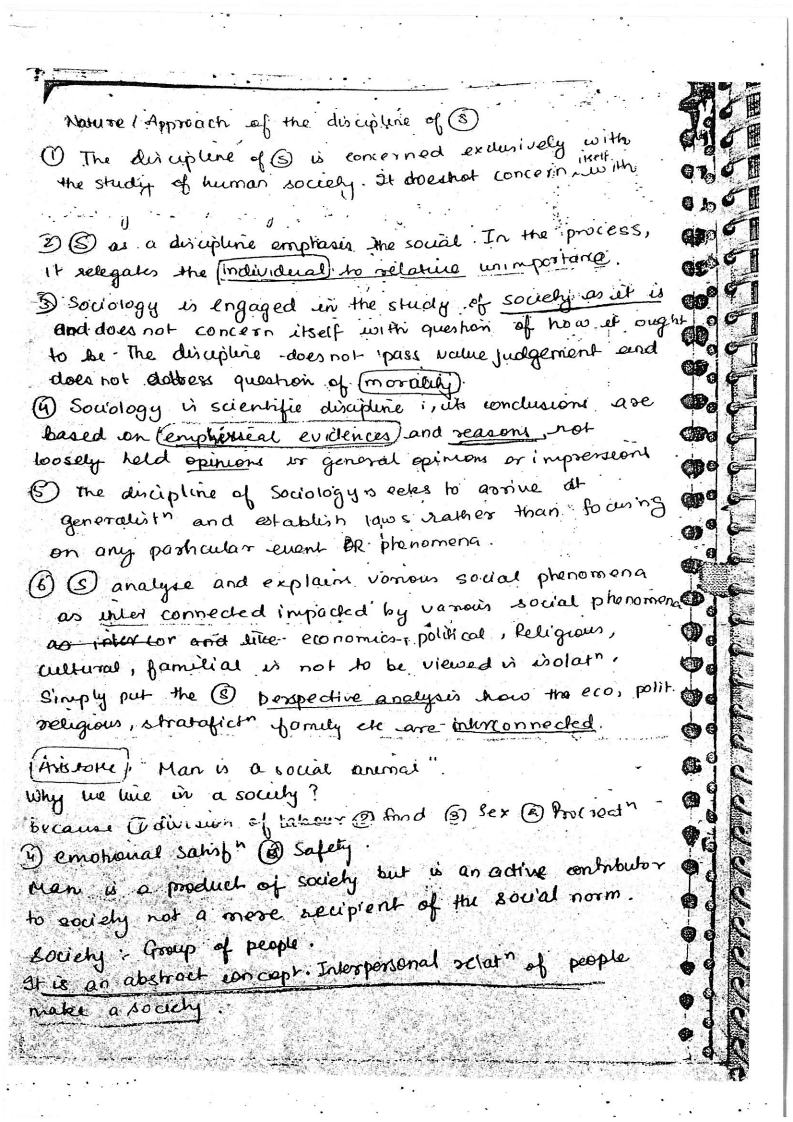 Nature / Approach of the discipline of Ⓢ
① The discipline of Ⓢ is concerned exclusively with
the study of human society. It doesnot concern itself with
② Ⓢ as a discipline emphases the social. In the process,
it relegates the individual to relative unimportance.
③ Sociology is engaged in the study of society as it is
and does not concern itself with question of how it ought
to be - The discipline does not pass value judgement and
does not address question of morality.
④ Sociology is scientific discipline i, its conclusions are
based on emphirical evidences and reasons, not
loosely held opinions or general opinions or impressions
⑤ The discipline of Sociology seeks to arrive at
generalistn and establish laws rather than focusing
on any particular event OR phenomena.
⑥ Ⓢ analyse and explains various social phenomena
as inter connected impacted by various social phenomena
as inter cor and like economics, political, Religious,
cultural, familial is not to be viewed in isolatn.
Simply put the Ⓢ perspective analysis how the eco, polit.
religious, stratafictn family etc are interconnected.
Aristotle: "Man is a social animal".
Why we live in a society?
because ① division of labour ② food ③ Sex ④ Procreatn
④ emotional satisfn ⑥ Safety.
Man is a product of society but is an active contributor
to society not a mere recipient of the social norm.
Society :- Group of people.
It is an abstract concept. Interpersonal relatn of people
make a society.